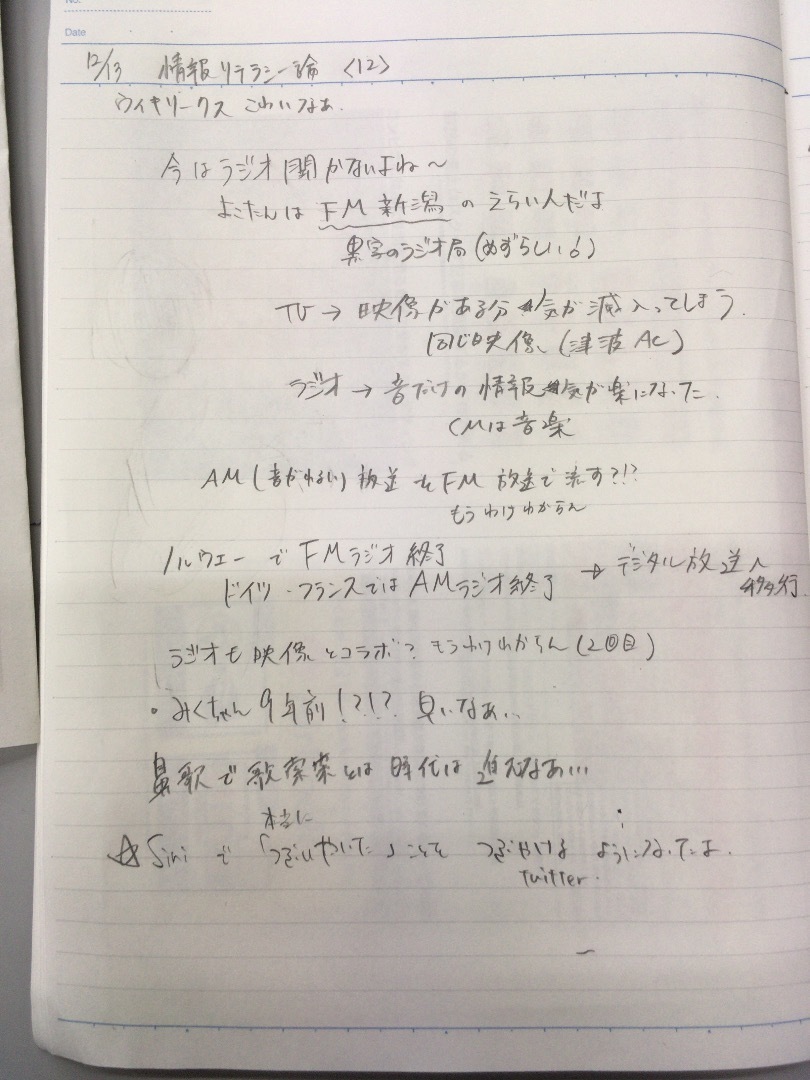 No.
Date
12/13 情報リテラシー論 〈12〉
ウィキリークス こわいなぁ.
今はラジオ聞かないよね〜
よこたんは FM新潟 の えらい人だよ
黒字のラジオ局(めずらしい6)
TV → 映像がある分 気が滅入ってしまう.
同じ映像(津波 AC)
ラジオ → 音だけの情報 気が楽になった.
CMは音楽
AM(音がわるい)放送をFM放送で流す?!?
もうわけわからん
ノルウェーでFMラジオ終了
ドイツ・フランスではAMラジオ終了 → デジタル放送へ
移行.
ラジオも映像とコラボ? もうわけわからん(2回目)
・みくちゃん9年前!?!? 早いなぁ...
鼻歌で歌検索とは時代は進むなあ...
本当に
☆Siriで「つぶやいた」ことを つぶやけるようになったよ.
twitter.